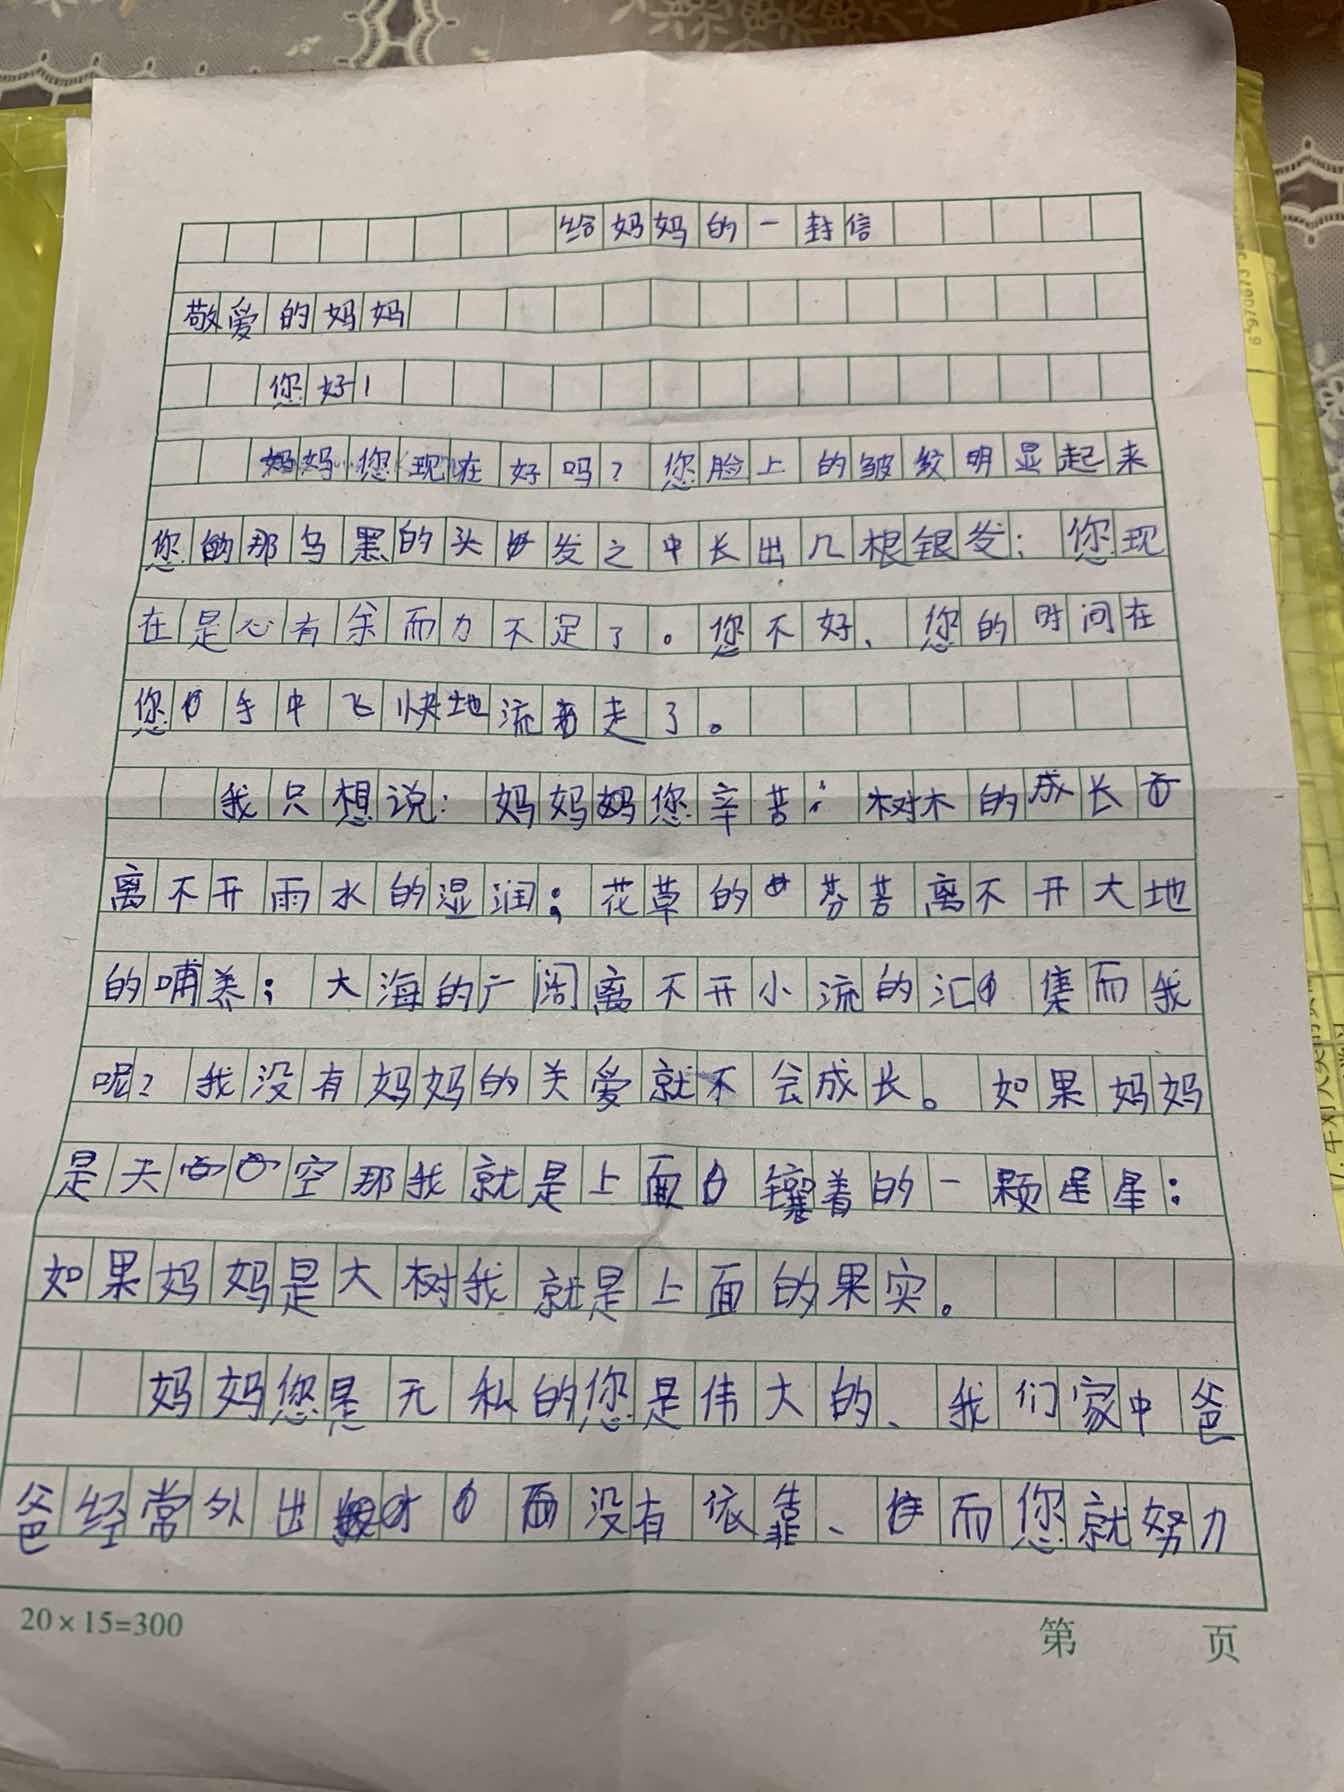 给妈妈的一封信
敬爱的妈妈
您好!
妈妈您现在好吗?您脸上的皱纹明显起来
您的那乌黑的头发之中长出几根银发;您现
在是心有余而力不足了。您不好、您的时间在
您手中飞快地流走了。
我只想说:妈妈您辛苦;树木的成长
离不开雨水的湿润;花草的芬苦离不开大地
的哺养;大海的广阔离不开小流的汇集而我
呢?我没有妈妈的关爱就不会成长。如果妈妈
是天空那我就是上面镶着的一颗星星:
如果妈妈是大树我就是上面的果实。
妈妈您是无私的您是伟大的、我们家中爸
爸经常外出没有依靠、而您就努力
20×15=300
第 页